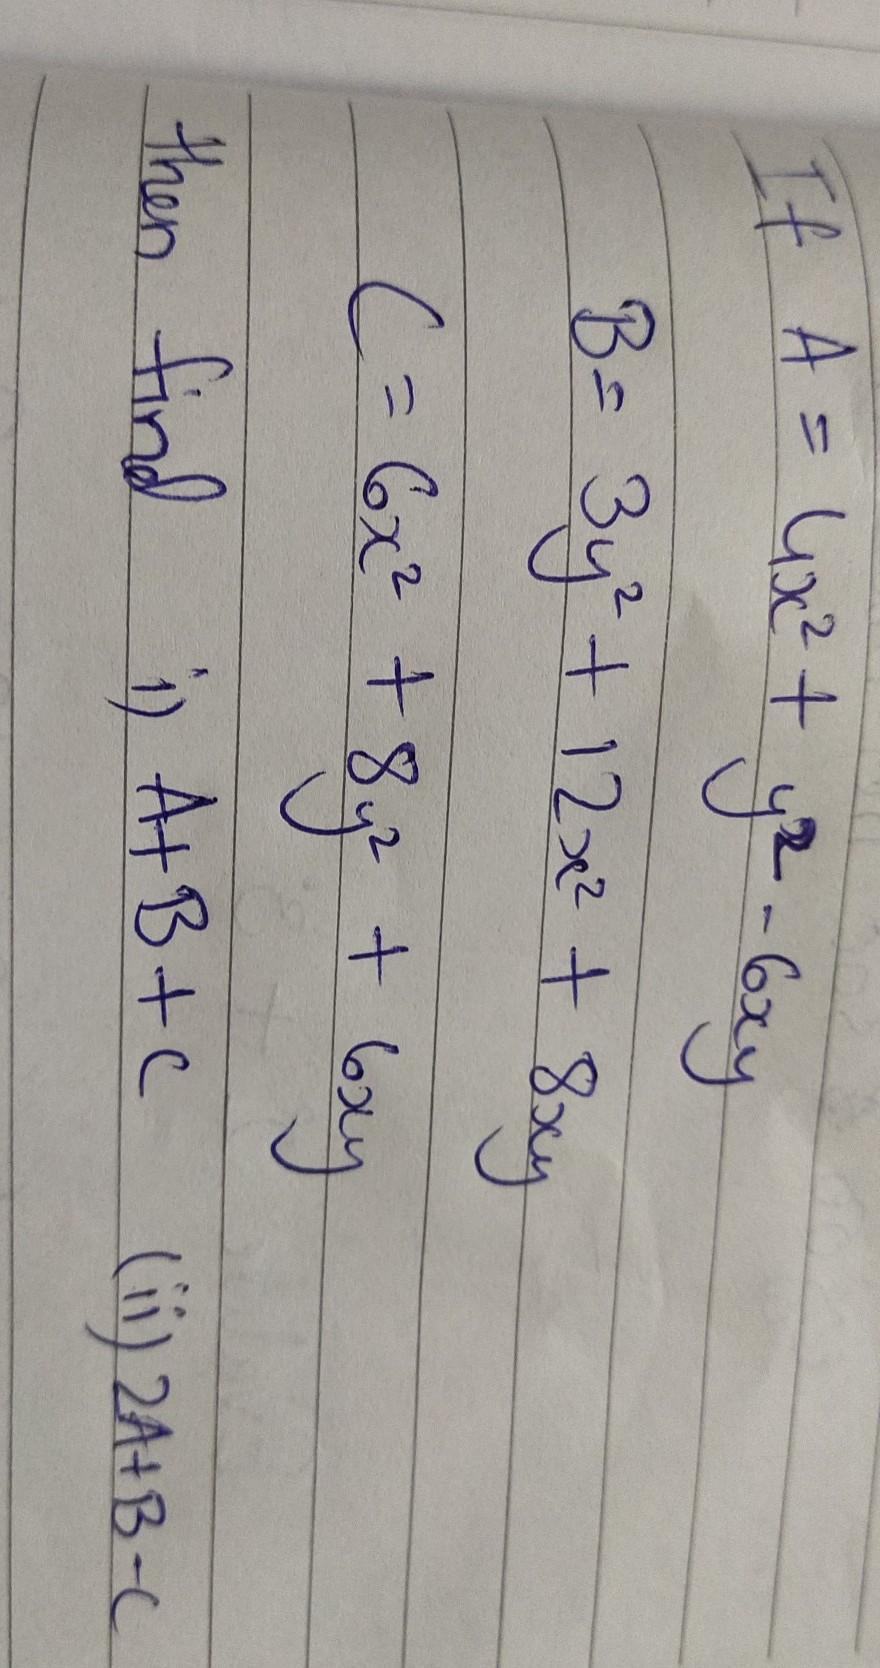 If A = 4x² + y² - 6xy
B = 3y² + 12x² + 8xy
C = 6x² + 8y² + 6xy
then find i) A+B+C (ii) 2A+B-C